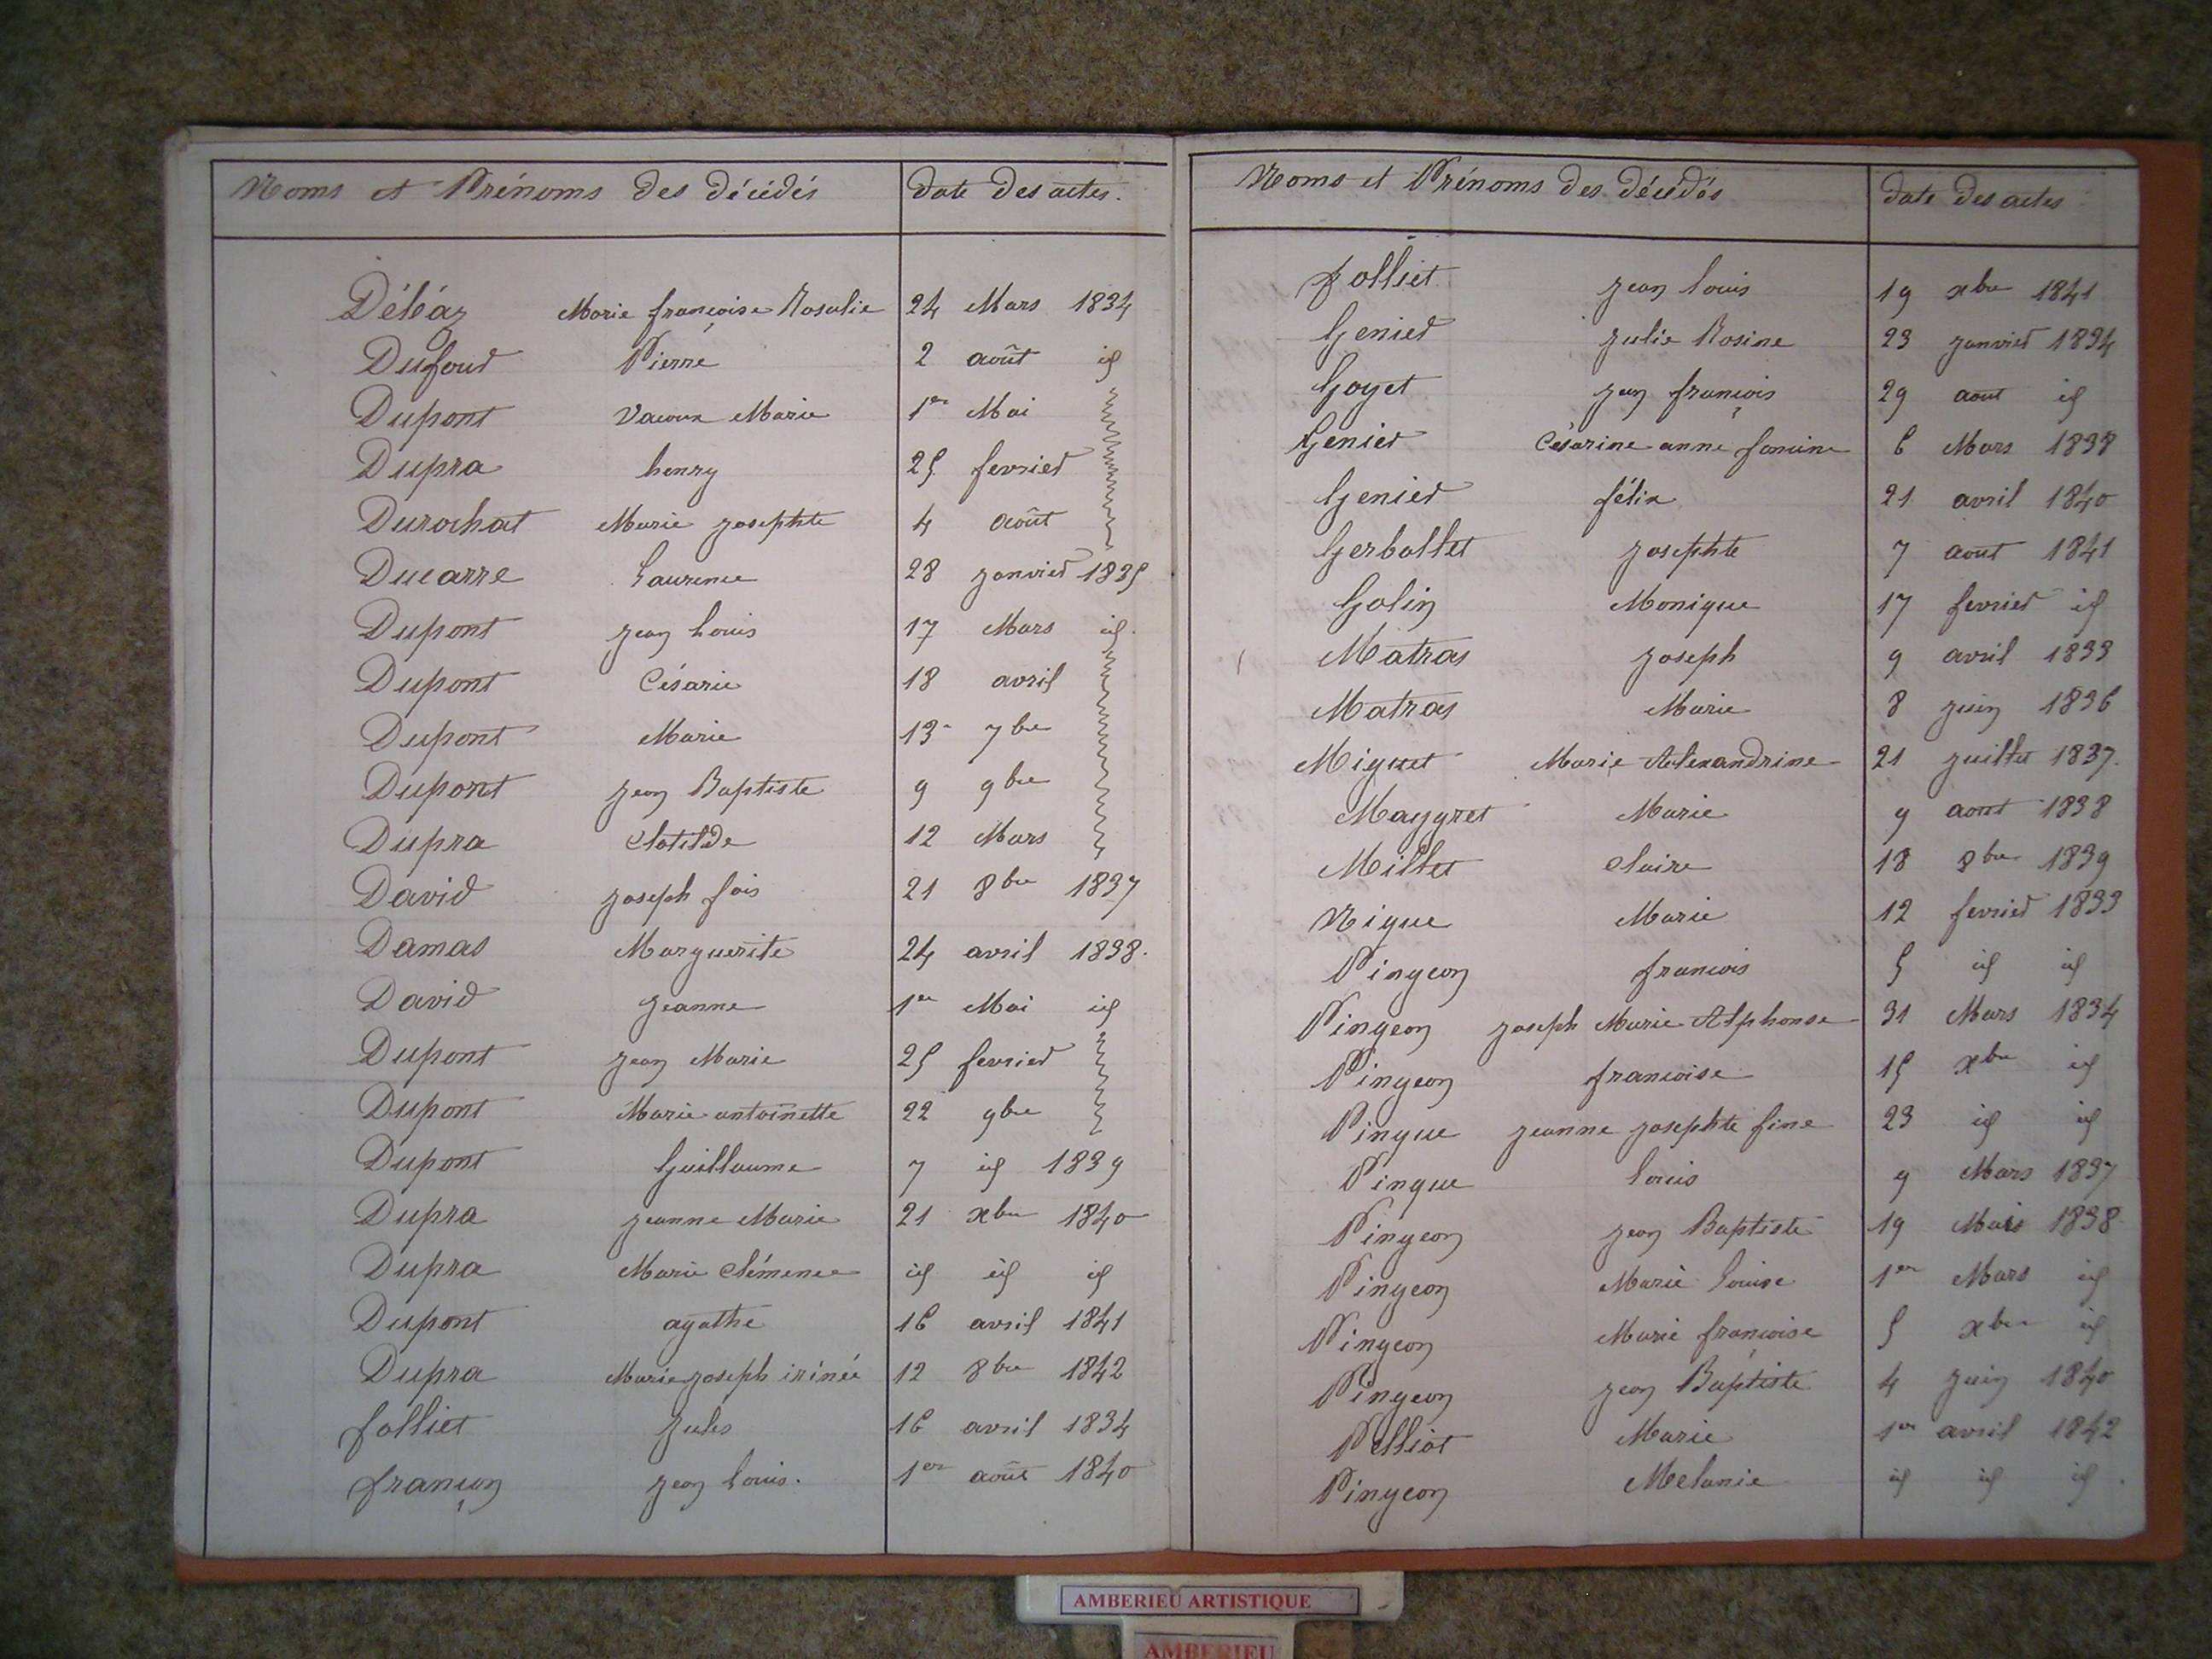 Noms et Prénoms des décédés date des actes.
Déléaz Marie françoise Rosalie 24 Mars 1834
Dufour Pierre 2 août id
Dupont Marie 1er Mai
Dupra henry 25 fevrier
Durochat Marie josephte 4 août
Ducarre Laurence 28 janvier 1835
Dupont jean Louis 17 Mars id.
Dupont Césarie 18 avril
Dupont Marie 13 7bre
Dupont jean Baptiste 9 9bre
Dupra Clotilde 12 Mars
David joseph fois 21 8bre 1837
Damas Marguerite 24 avril 1838.
David jeanne 1er Mai id
Dupont jean Marie 25 fevrier
Dupont Marie antoinette 22 9bre
Dupont Guillaume 7 id 1839
Dupra jeanne Marie 21 xbre 1840
Dupra Marie Clémence id id id
Dupont agathe 16 avril 1841
Dupra Marie joseph irénée 12 8bre 1842
folliet jules 16 avril 1834
françon jean Louis. 1er août 1840
Noms et Prénoms des décédés date des actes
folliet jean Louis 19 xbre 1841
Genier julie Rosine 23 janvier 1834
Goyet jean françois 29 aout id
Genier Césarine anne 6 Mars 1838
Genier félix 21 avril 1840
Gerbollet josephte 7 aout 1841
Golin Monique 17 fevrier id
Matras joseph 9 avril 1833
Matras Marie 8 juin 1836
Miguet Marie Alexandrine 21 juillet 1837.
Maygret Marie 9 aout 1838
Millet Claire 18 8bre 1839
Nique Marie 12 fevrier 1833
Pingeon francois 5 id id
Pingeon joseph Marie Alphonse 31 Mars 1834
Pingeon francoise 15 xbre id
Pingue jeanne josephte fine 23 id id
Pingue Louis 9 Mars 1837
Pingeon jean Baptiste 19 Mars 1838
Pingeon Marie Louise 1er Mars id
Pingeon Marie françoise 5 xbre id
Pingeon jean Baptiste 4 juin 1840
Pelliot Marie 1er avril 1842
Pingeon Melanie id id id.
AMBERIEU ARTISTIQUE
AMBERIEU